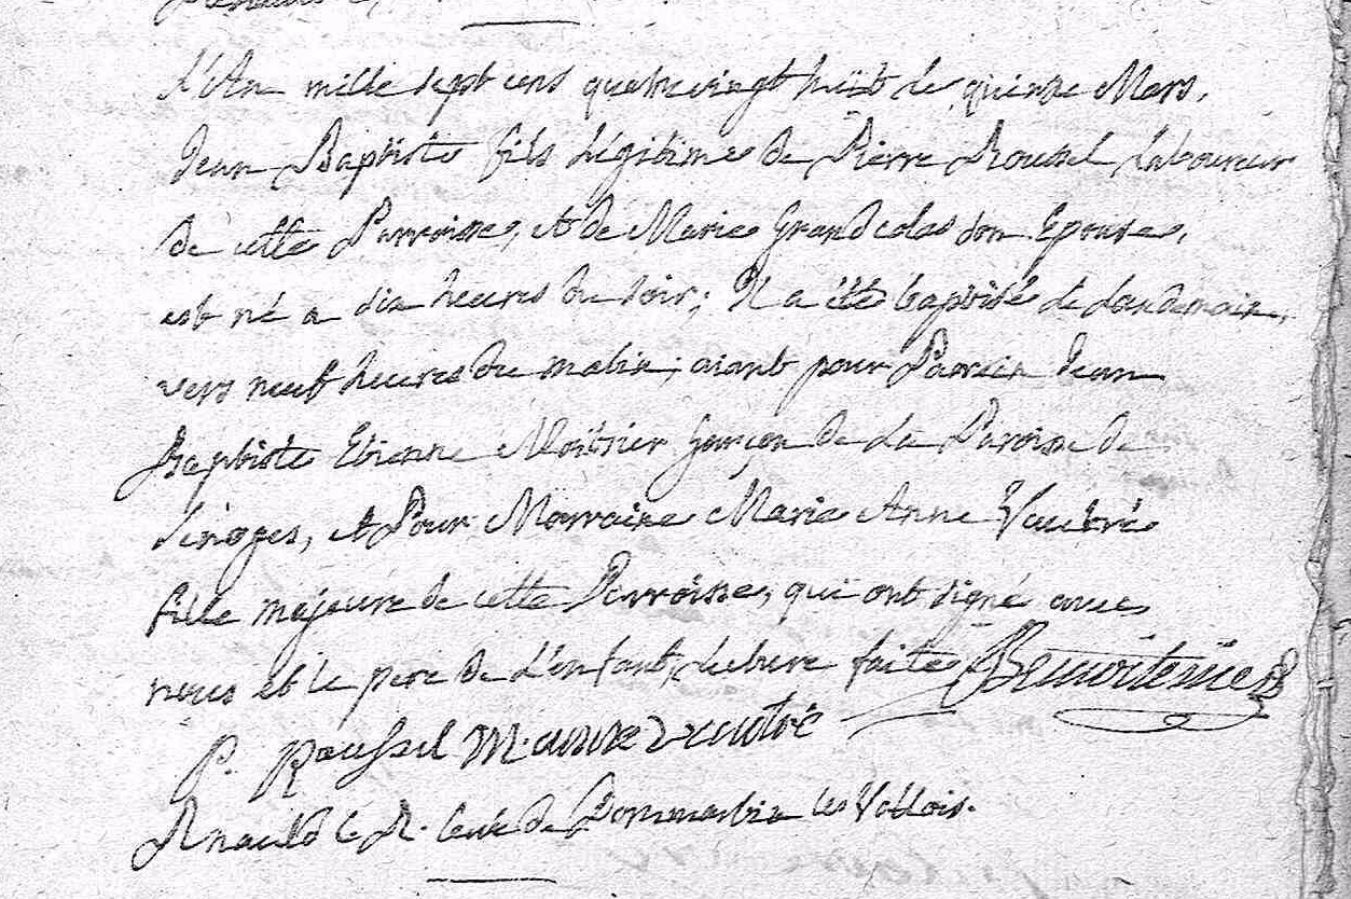 L'An mille sept cens quatrevingt huit le quinze Mars,
Jean Baptiste fils légitime de Pierre Roussel Laboureur
de cette Parroisse, et de Marie Grandcolas son Epouse,
est né a dix heures du soir; Il a été baptisé le lendemain,
vers neuf heures du matin; aiant pour Parrain Jean
Baptiste Etienne Moitrier garçon de la Paroisse de
et Pour Marraine Marie Anne Vautré
fille majeure de cette Parroisse, qui ont signé avec
nous et le pere de L'enfant, lecture faite
P. Roussel M. anne vautré
Arnauld C. R. Curé de Dommartin les Vallois.